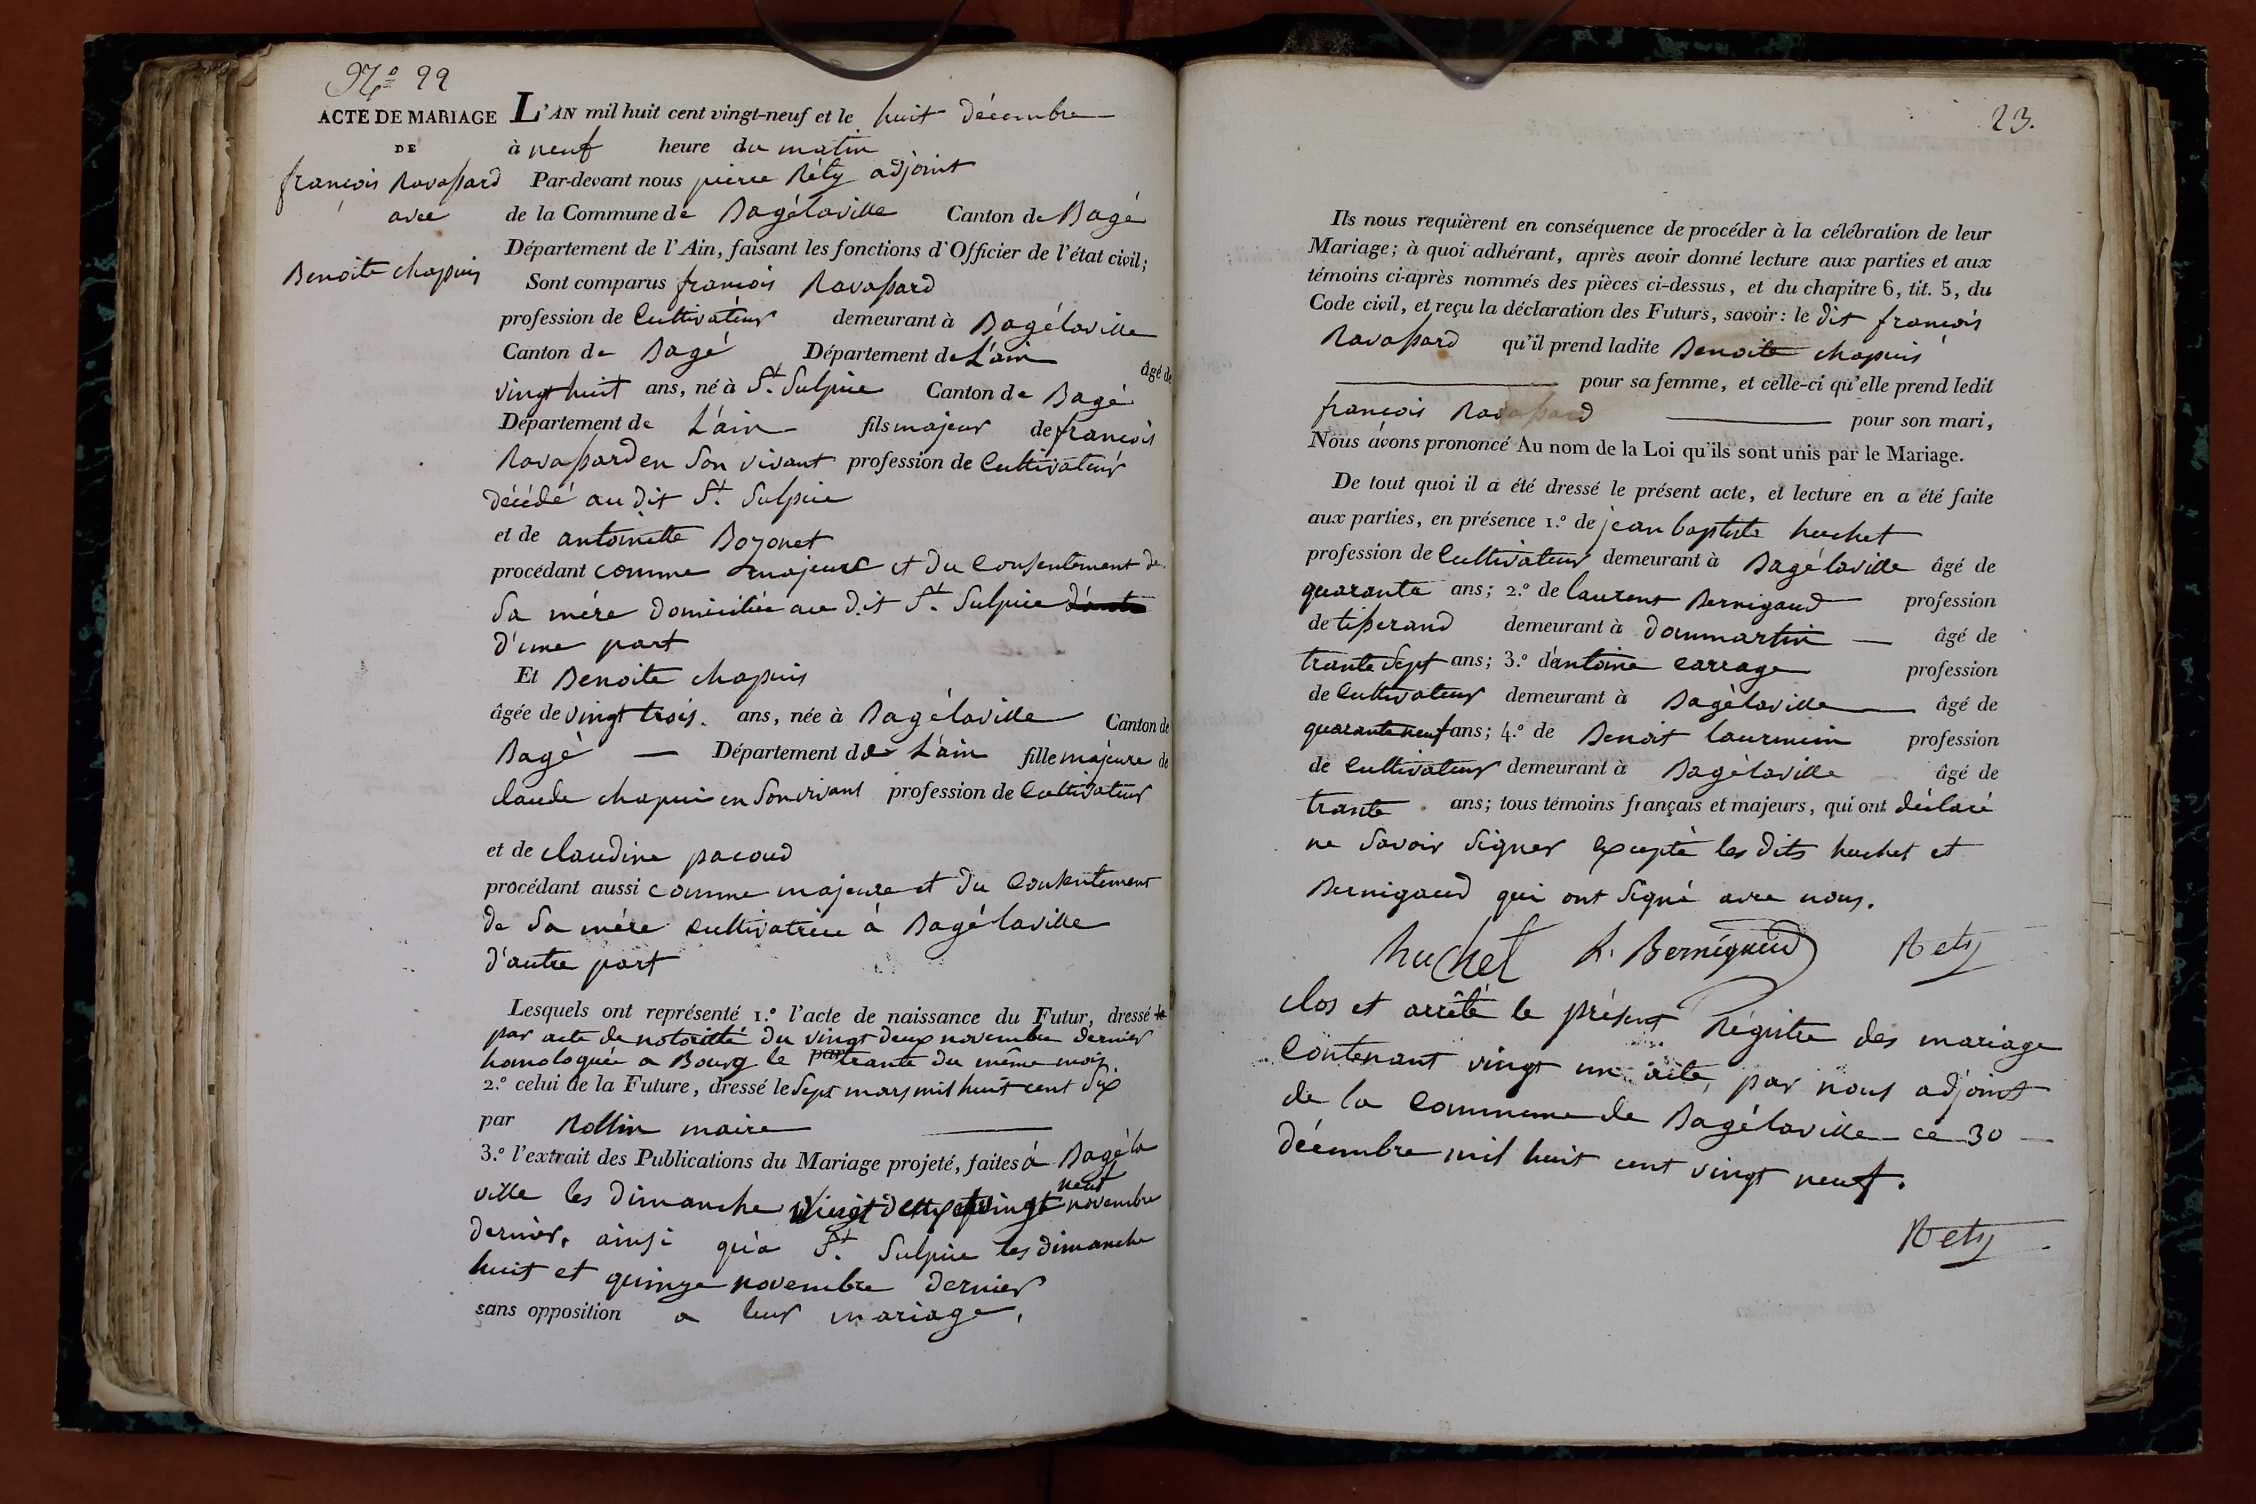 N.º 22
ACTE DE MARIAGE
DE
françois Ravassard
avec
Benoite chapuis
L'AN mil huit cent vingt-neuf et le huit décembre
à neuf heure du matin
Par-devant nous pierre Réty adjoint
de la Commune de Bagélaville Canton de Bagé
Département de l'Ain, faisant les fonctions d'Officier de l'état civil;
Sont comparus françois Ravassard
profession de Cultivateur demeurant à Bagélaville
Canton de Bagé Département de L'ain âgé de
vingt huit ans, né à St. Sulpice Canton de Bagé
Département de L'ain fils majeur de françois
Ravassard en Son vivant profession de Cultivateur
décédé au dit St. Sulpice
et de antoinette Bozonet
procédant comme majeur et du Consentement de
Sa mére domiciliée au dit St. Sulpice
d'une part
Et Benoite chapuis
âgée de vingt trois. ans, née à Bagélaville Canton de
Bagé — Département de L'ain fille majeure de
claude chapuis en Son vivant profession de Cultivateur
et de claudine pacoud
procédant aussi comme majeure et du Consentement
de Sa mére cultivatrice à Bagélaville
d'autre part
Lesquels ont représenté 1.º l'acte de naissance du Futur, dressé le
par acte de notoriété du vingt deux novembre dernier
homologuée a Bourg le par trante du même mois
2.º celui de la Future, dressé le Sept mars mil huit cent Six
par Rollin maire
3.º l'extrait des Publications du Mariage projeté, faites à Bagéla
ville les dimanche vingt deux et vingt neuf novembre
dernier, ainsi qu'a St. Sulpice les dimanche
huit et quinze novembre dernier
sans opposition a leur mariage.
23.
Ils nous requièrent en conséquence de procéder à la célébration de leur
Mariage; à quoi adhérant, après avoir donné lecture aux parties et aux
témoins ci-après nommés des pièces ci-dessus, et du chapitre 6, tit. 5, du
Code civil, et reçu la déclaration des Futurs, savoir: le dit françois
Ravassard qu'il prend ladite Benoite chapuis
pour sa femme, et celle-ci qu'elle prend ledit
françois Ravassard pour son mari,
Nous avons prononcé Au nom de la Loi qu'ils sont unis par le Mariage.
De tout quoi il a été dressé le présent acte, et lecture en a été faite
aux parties, en présence 1.º de jean baptiste huchet
profession de Cultivateur demeurant à Bagélaville âgé de
quarante ans; 2.º de laurent Bernigaud profession
de tisserand demeurant à dommartin — âgé de
trante Sept ans; 3.º d'antoine carrage profession
de Cultivateur demeurant à Bagélaville âgé de
quarante neuf ans; 4.º de Benoit laurencin profession
de Cultivateur demeurant à Bagélaville âgé de
trante ans; tous témoins français et majeurs, qui ont déclaré
ne Savoir Signer excepté les dits huchet et
Bernigaud qui ont Signé avec nous.
huchet L. Bernigaud Rety
clos et arrêté le présent Régistre des mariage
Contenant vingt un acte, par nous adjoint
de la commune de Bagélaville ce 30
décembre mil huit cent vingt neuf.
Rety